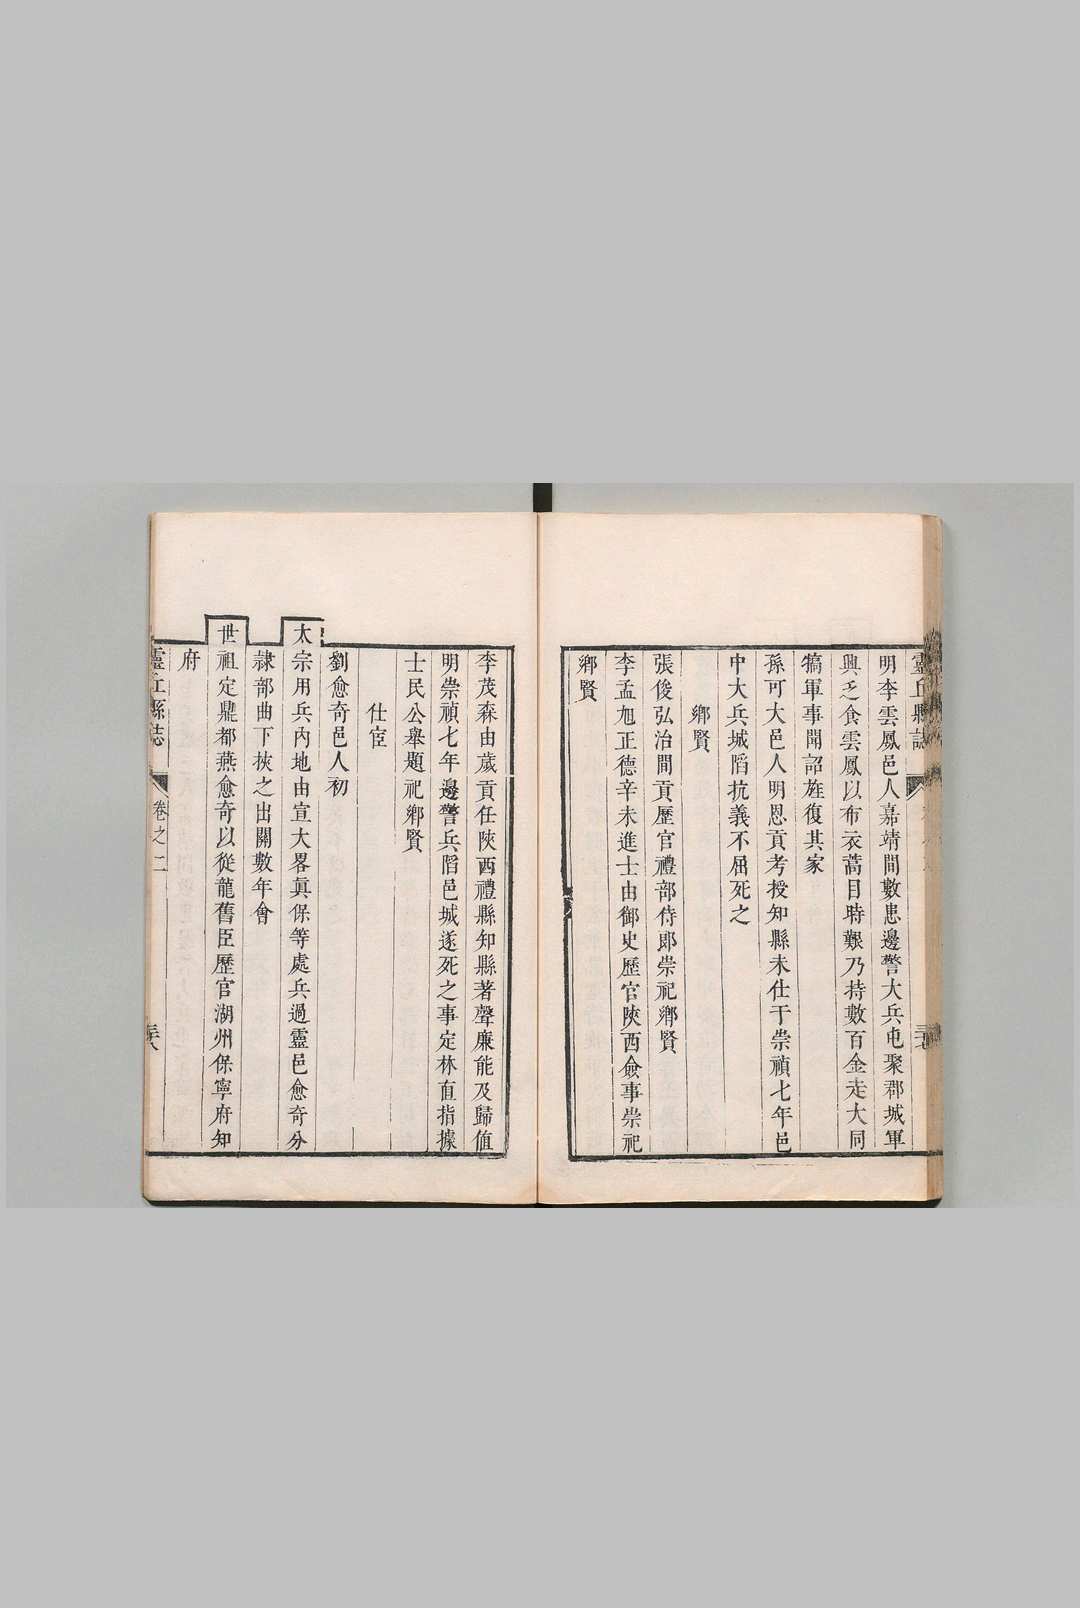 靈丘縣誌
明李雲鳳邑人嘉靖間數患邊警大兵屯聚郡城軍
興乏食雲鳳以布衣蒿目時艱乃持數百金走大同
犒軍事聞詔旌復其家
孫可大邑人明恩貢考授知縣未仕于崇禎七年邑
中大兵城陷抗義不屈死之
鄉賢
張俊弘治間貢歷官禮部侍郎崇祀鄉賢
李孟旭正德辛未進士由御史歷官陝西僉事崇祀
鄉賢
李茂森由歲貢任陝西禮縣知縣著聲廉能及歸值
明崇禎七年邊警兵陷邑城遂死之事定林直指據
士民公舉題祀鄉賢
仕宦
劉愈奇邑人初
太宗用兵內地由宣大畧真保等處兵過靈邑愈奇分
隸部曲下挾之出關數年會
世祖定鼎都燕愈奇以從龍舊臣歷官湖州保寧府知
府
靈丘縣誌 卷之二 三十八